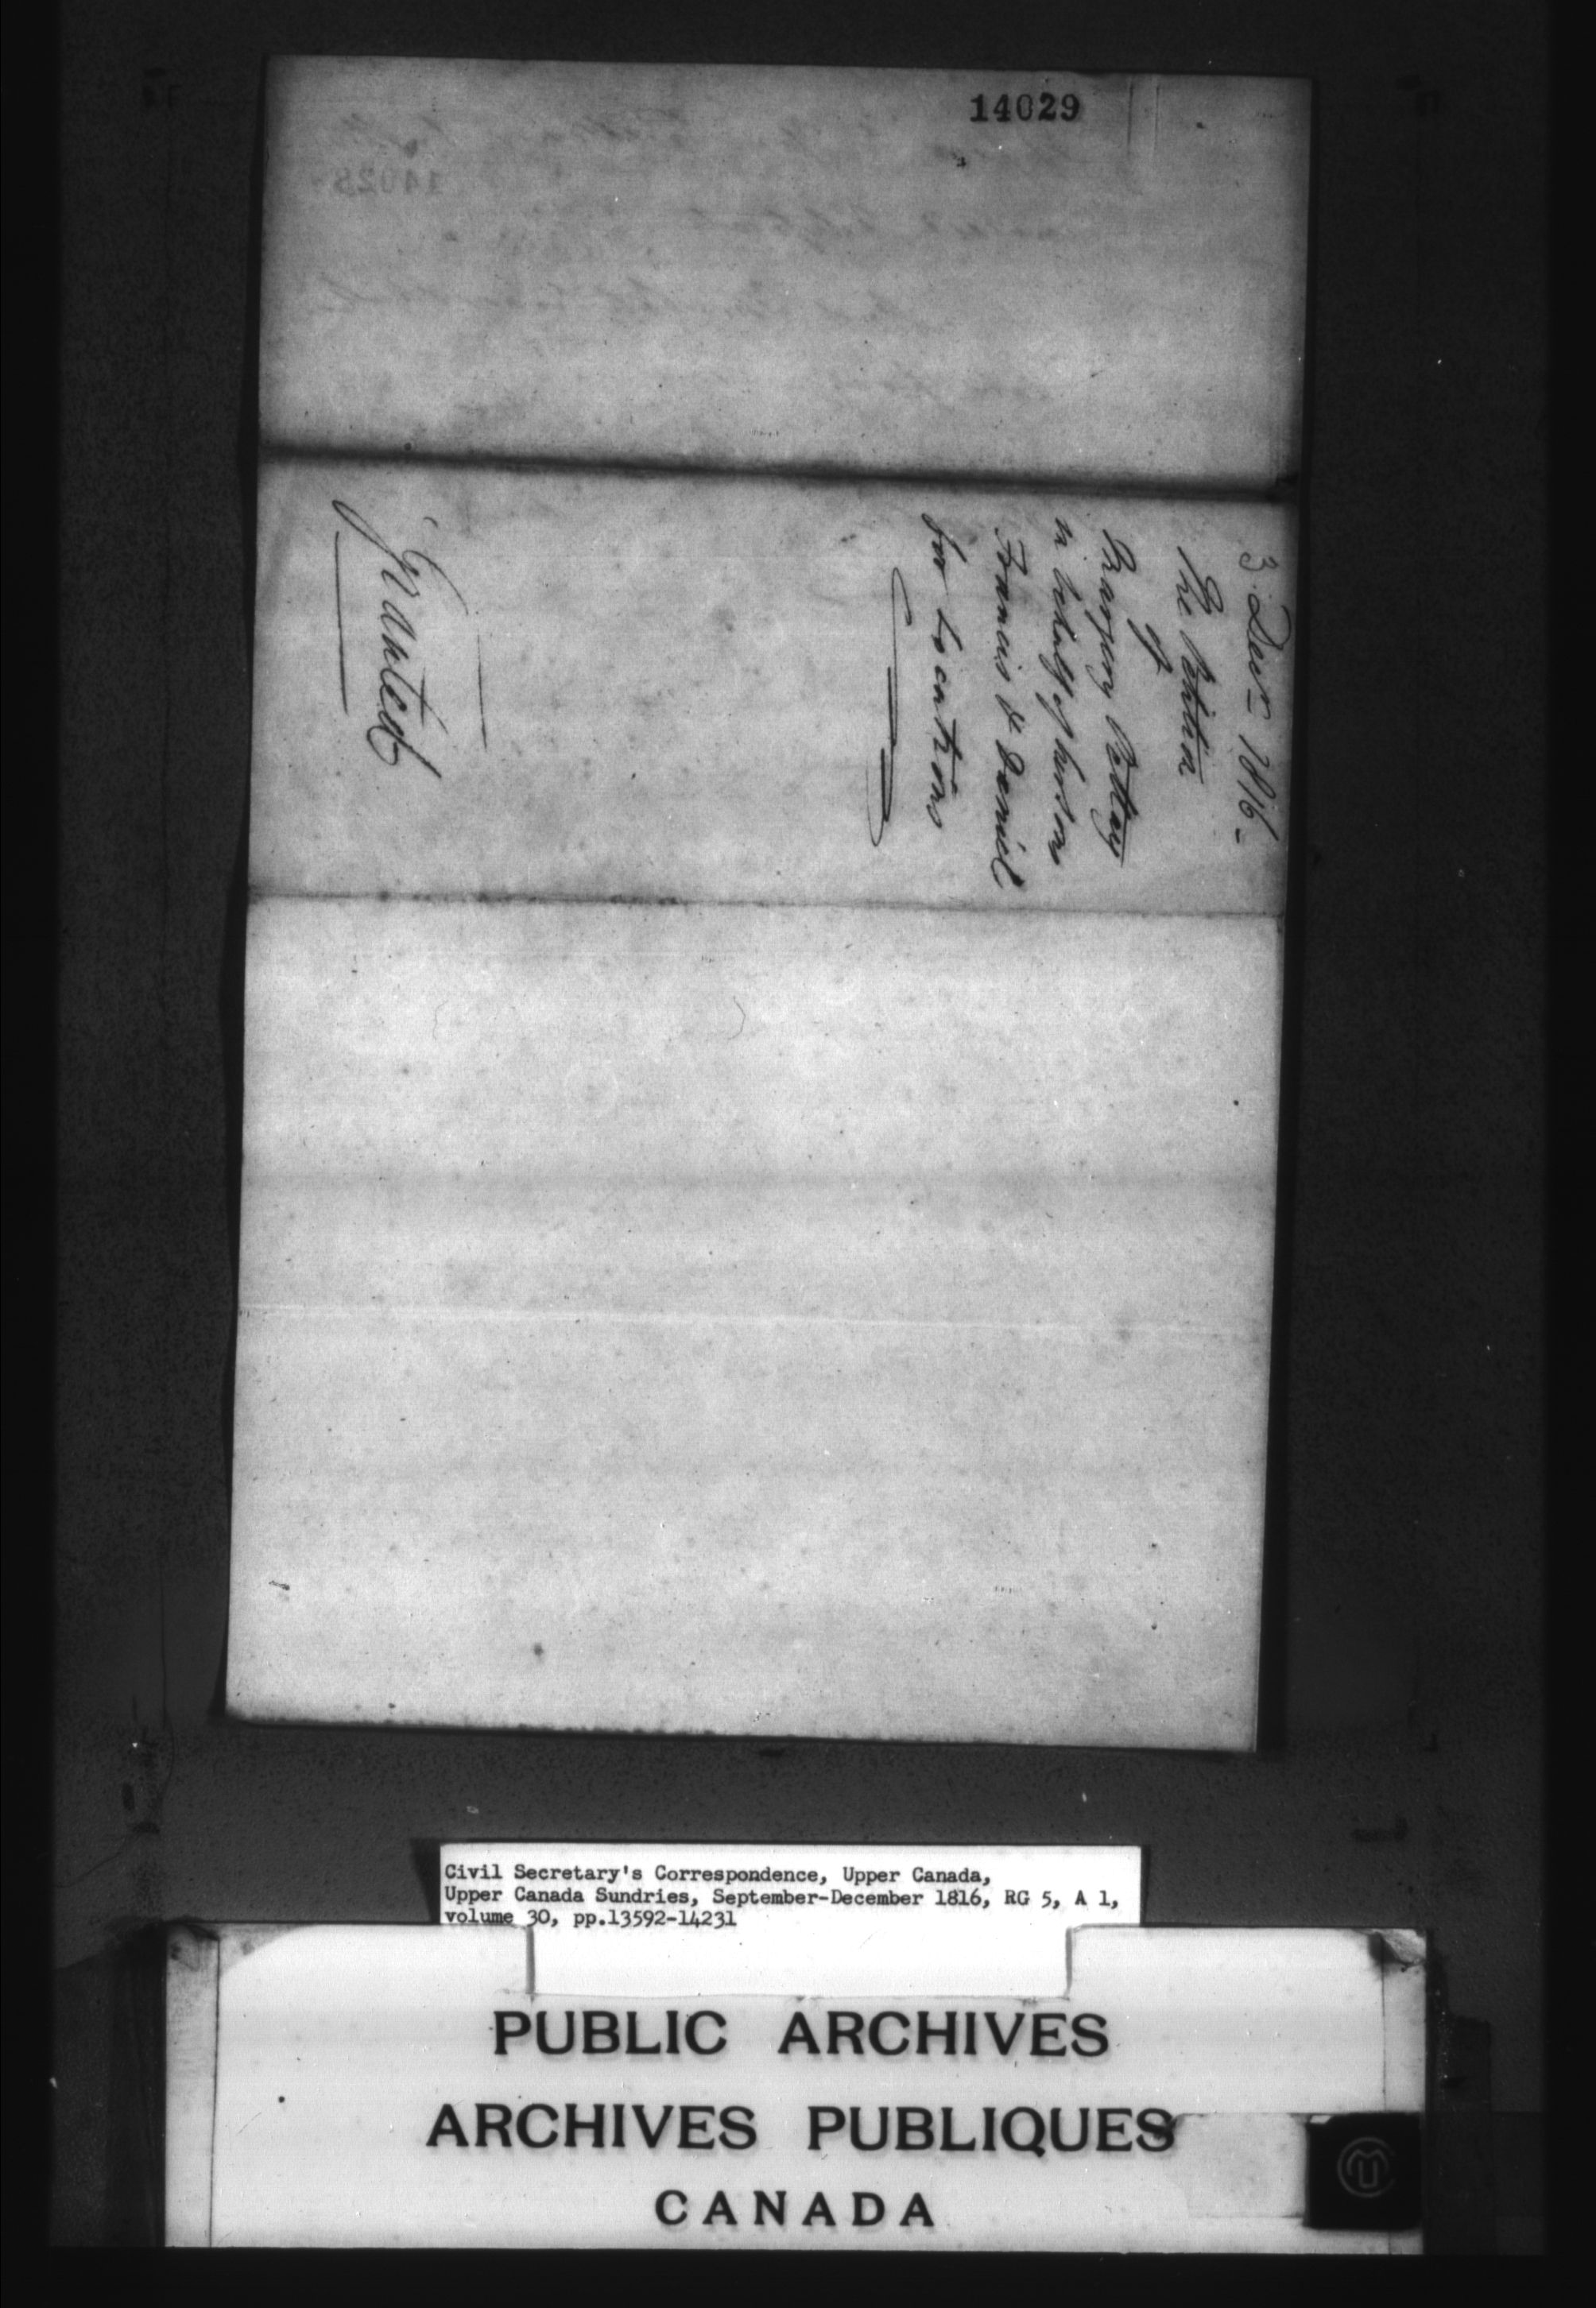 14029
3 Decr 1816 -
The Petition
of
in behalf of her sons
Francis & Daniel
for Locations
Granted
Civil Secretary's Correspondence, Upper Canada,
Upper Canada Sundries, September-December 1816, RG 5, A 1,
volume 30, pp.13592-14231
PUBLIC ARCHIVES
ARCHIVES PUBLIQUES
CANADA